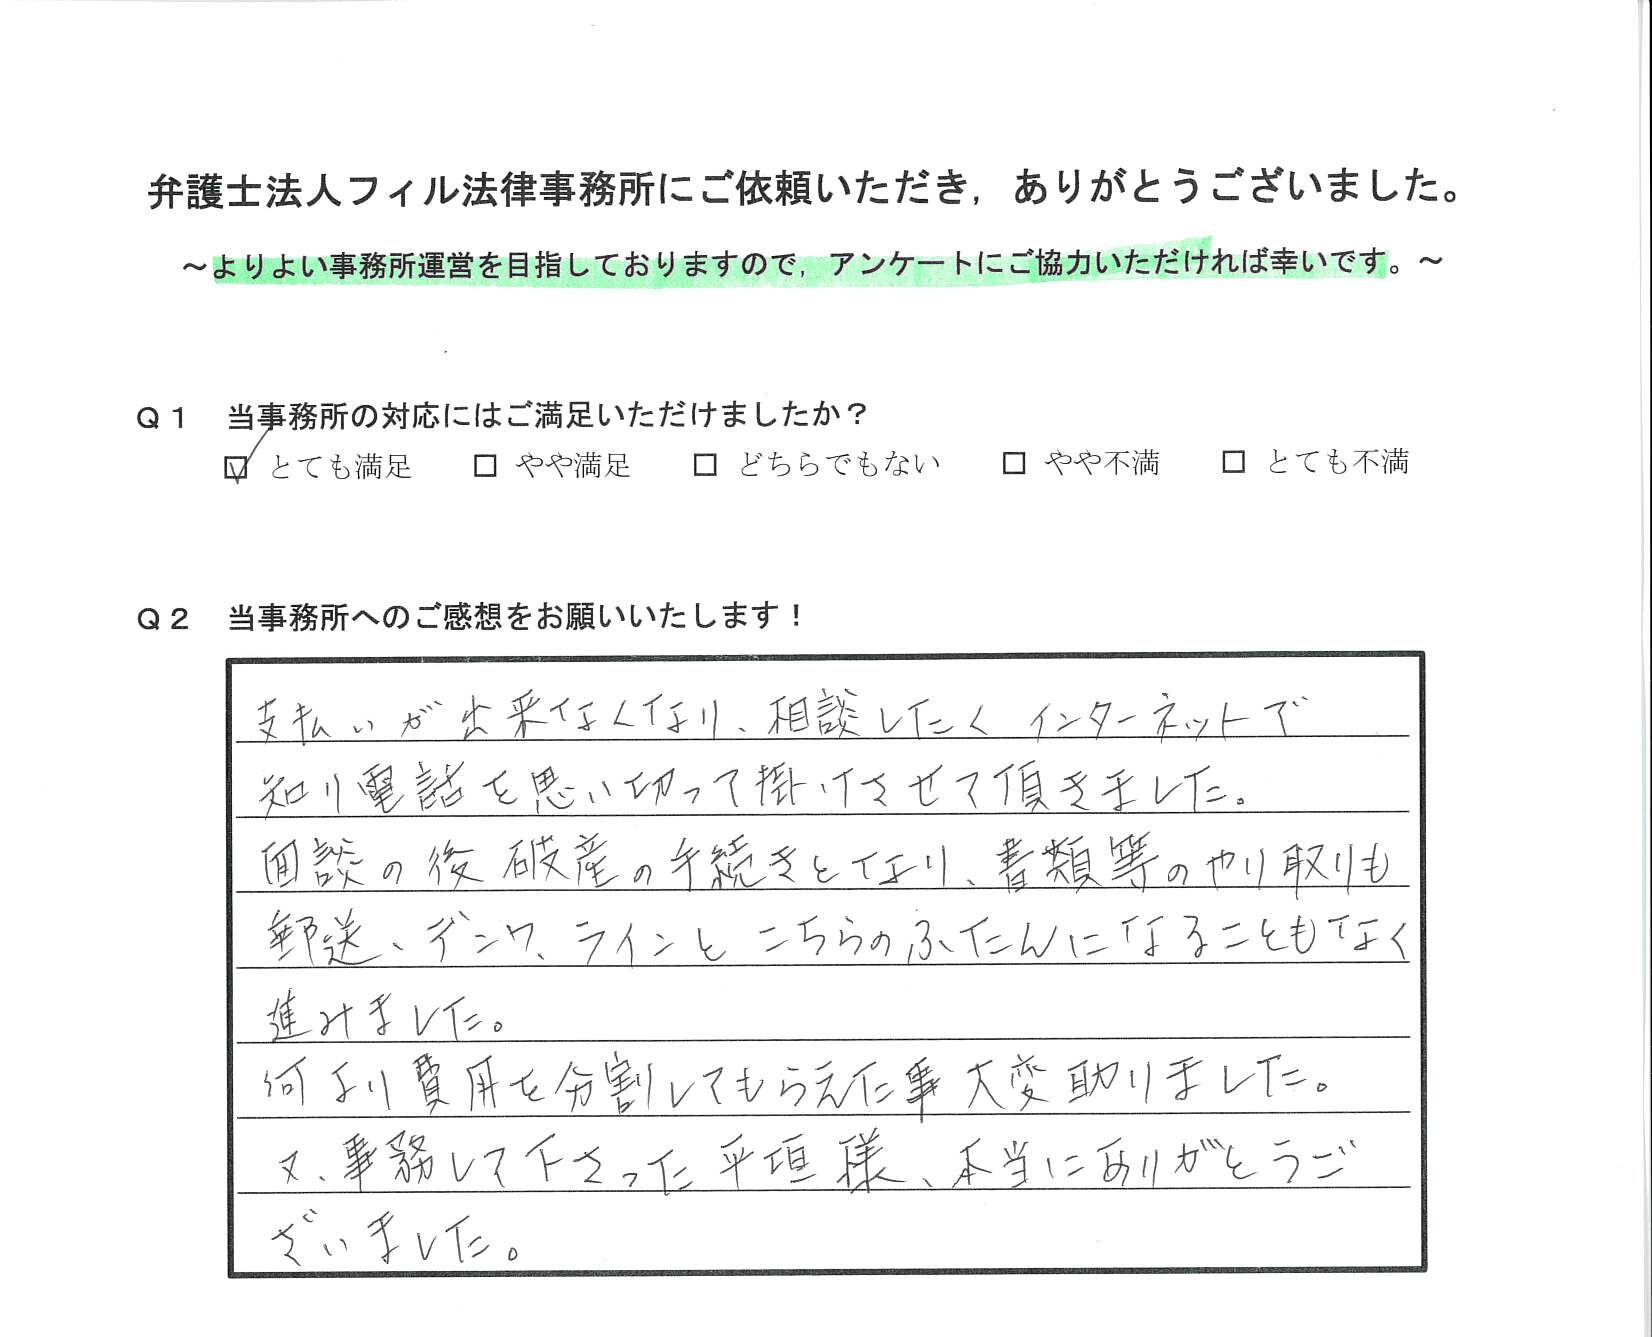 弁護士法人フィル法律事務所にご依頼いただき，ありがとうございました。
～よりよい事務所運営を目指しておりますので，アンケートにご協力いただければ幸いです。～
Ｑ１　当事務所の対応にはご満足いただけましたか？
☑ とても満足　□ やや満足　□ どちらでもない　□ やや不満　□ とても不満
Ｑ２　当事務所へのご感想をお願いいたします！
支払いが出来なくなり、相談したく インターネットで
知り電話を思い切って掛けさせて頂きました。
面談の後 破産の手続きとなり、書類等のやり取りも
郵送、デンワ、ラインと こちらのふたんになることもなく
進みました。
何より費用を分割してもらえた事 大変助りました。
又、事務して下さった平垣様、本当にありがとうご
ざいました。